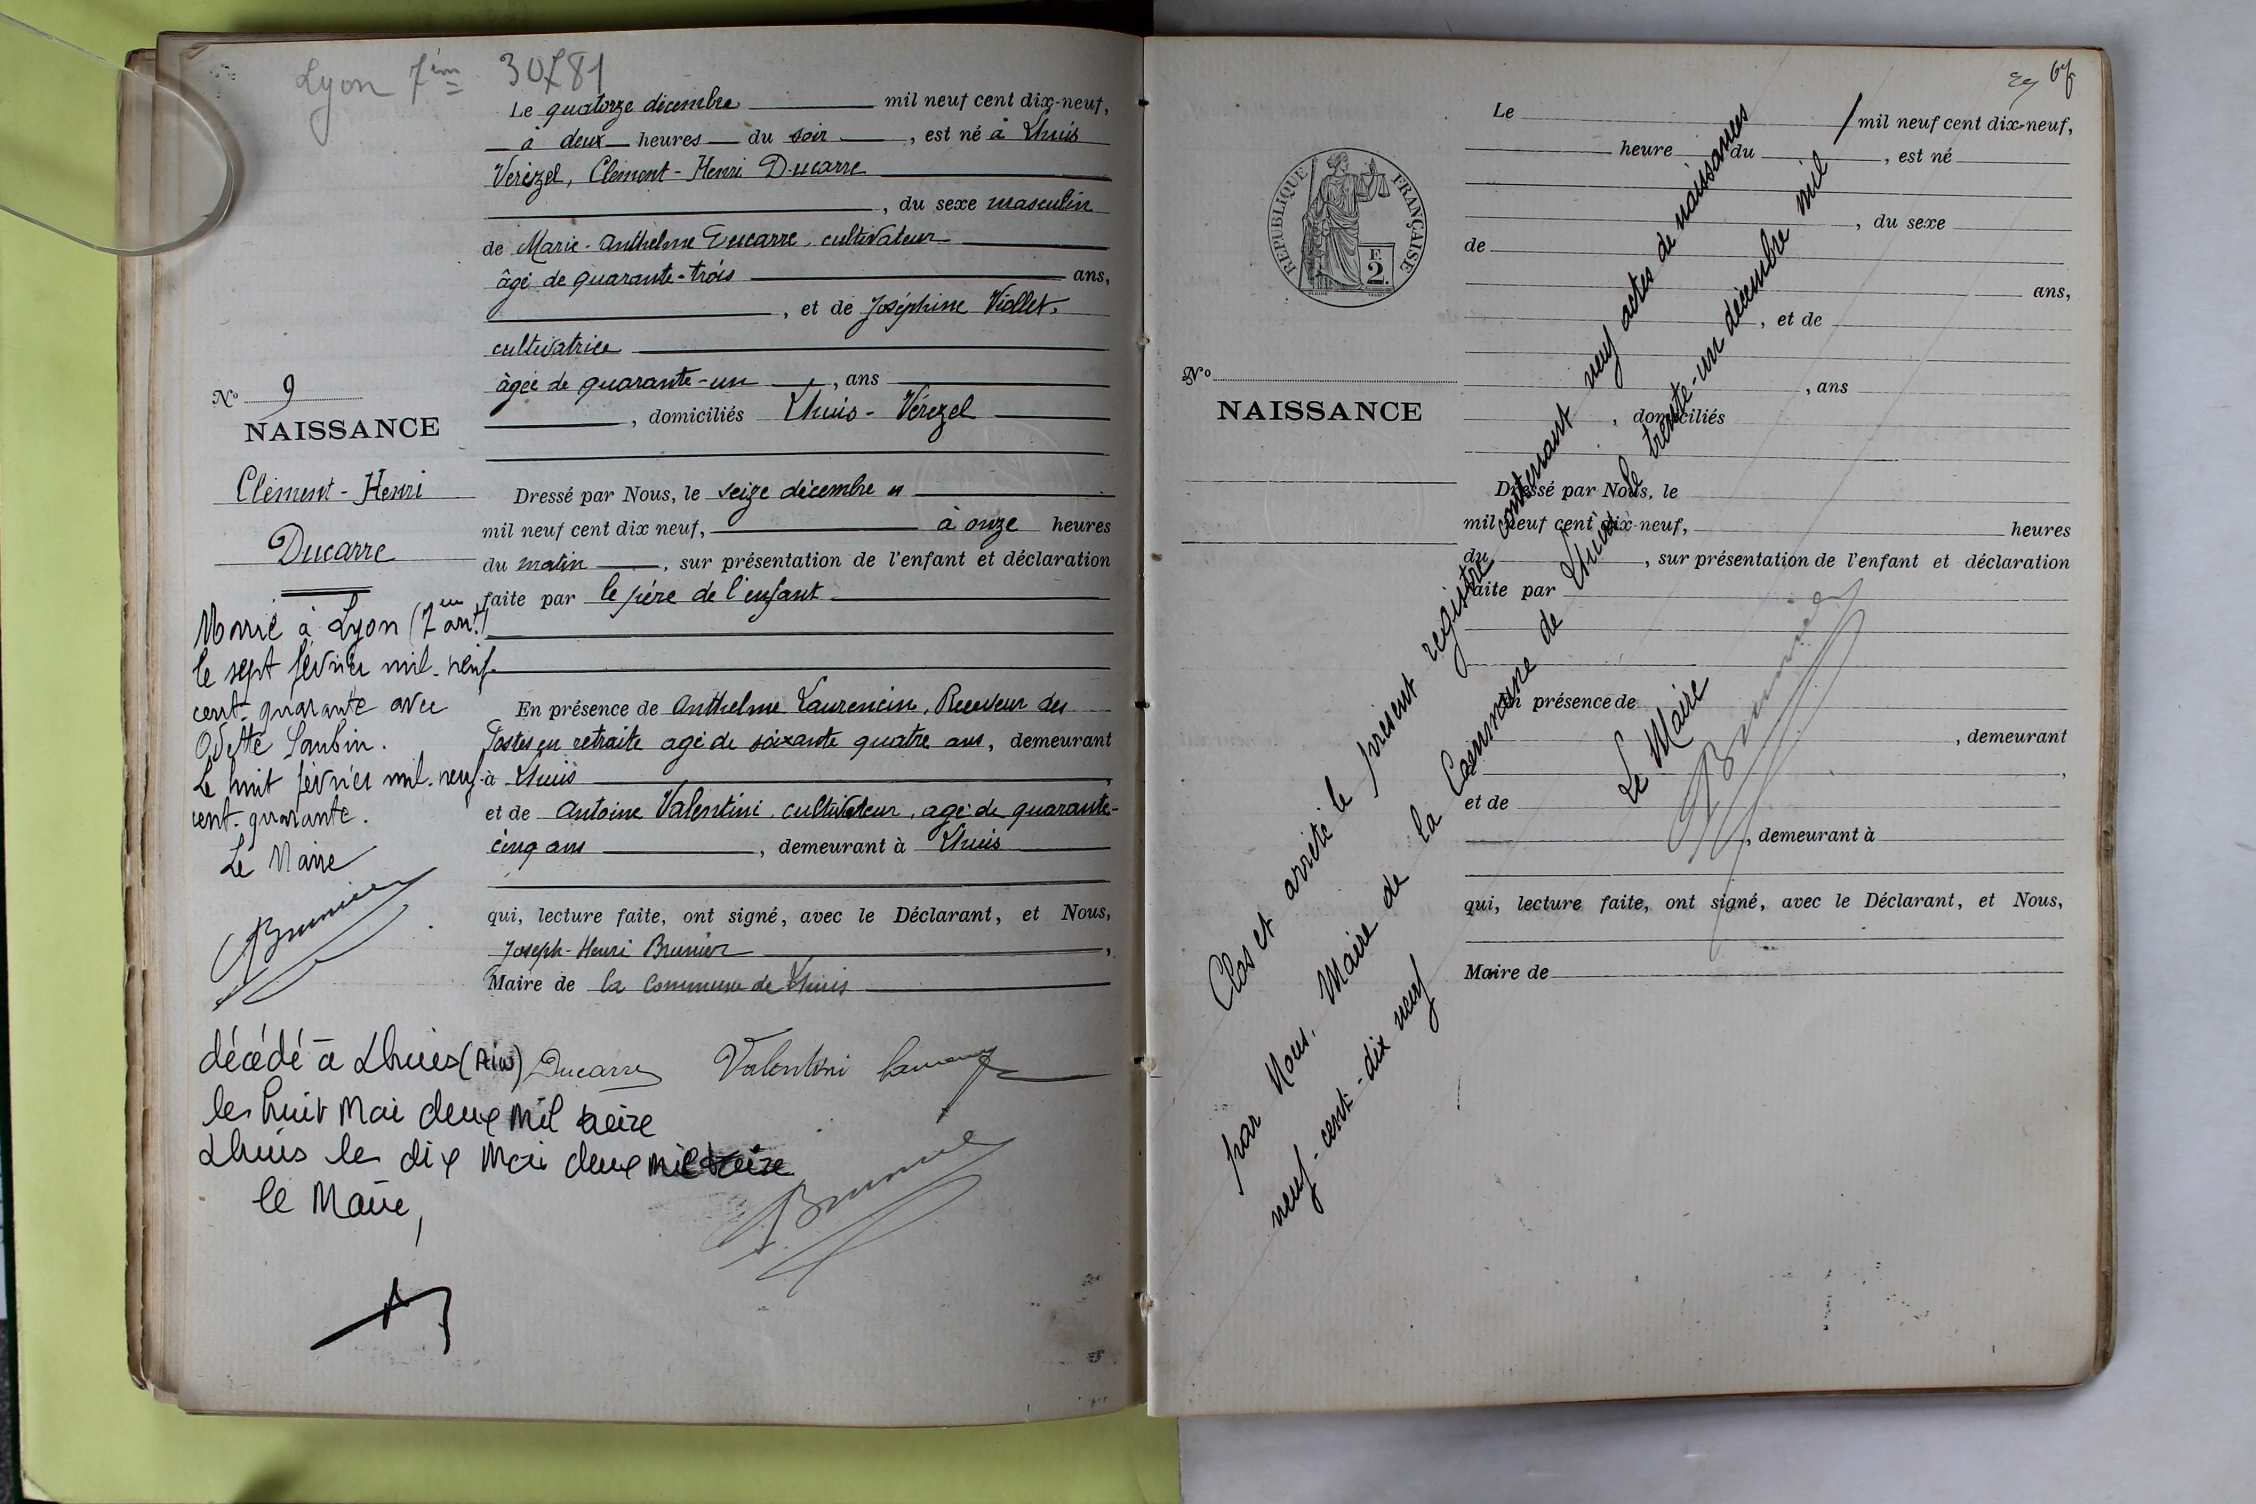 Lyon 7ème 30781
Le quatorze décembre mil neuf cent dix-neuf,
à deux heures du soir, est né à Lhuis
Vérizel, Clément-Henri Ducarre
, du sexe masculin
de Marie-Anthelme Ducarre, cultivateur
âgé de quarante-trois ans,
, et de Joséphine Viollet,
cultivatrice
âgée de quarante-un, ans
, domiciliés Lhuis-Vérezel
No 9
NAISSANCE
Clément-Henri
Ducarre
Dressé par Nous, le seize décembre
mil neuf cent dix neuf, à onze heures
du matin, sur présentation de l'enfant et déclaration
faite par le père de l'enfant
En présence de Anthelme Laurencin, Receveur des
Postes en retraite agé de soixante quatre ans, demeurant
à Lhuis,
et de Antoine Valentini, cultivateur, agé de quarante-
cinq ans, demeurant à Lhuis
qui, lecture faite, ont signé, avec le Déclarant, et Nous,
Joseph-Henri Brunier,
Maire de la Commune de Lhuis
Marié à Lyon (7em arrt)
le sept février mil-neuf-
cent-quarante avec
Odette
Le huit février mil-neuf-
cent-quarante.
Le Maire
Brunier
Ducarre Valentini
Brunier
décédé à Lhuis (Ain)
le huit Mai deux mil treize
Lhuis le dix Mai deux mil treize
le Maire,
67
Le mil neuf cent dix-neuf,
heure du, est né
, du sexe
de
ans,
, et de
RÉPUBLIQUE FRANÇAISE
F.
2.
No
NAISSANCE
, ans
, domiciliés
Dressé par Nous, le
mil neuf cent dix-neuf, heures
du, sur présentation de l'enfant et déclaration
faite par
En présence de
, demeurant
à,
et de
, demeurant à
qui, lecture faite, ont signé, avec le Déclarant, et Nous,
Maire de
Clos et arrêté le présent registre contenant neuf actes de naissances
par Nous, Maire de la Commune de Lhuis le trente-un décembre mil
neuf-cent-dix neuf
Le Maire
Brunier